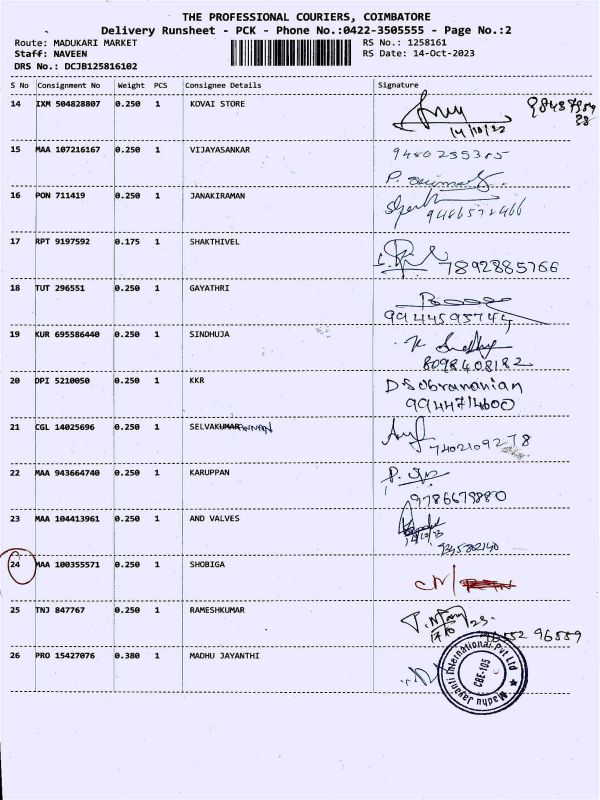 THE PROFESSIONAL COURIERS, COIMBATORE
Delivery Runsheet - PCK - Phone No.:0422-3505555 - Page No.:2
Route: MADUKARI MARKET RS No.: 1258161
Staff: NAVEEN RS Date: 14-Oct-2023
DRS No.: DCJB125816102
S No Consignment No Weight PCS Consignee Details Signature
14 IXM 504828807 0.250 1 KOVAI STORE
14/10/22
15 MAA 107216167 0.250 1 VIJAYASANKAR 9480255385
16 PON 711419 0.250 1 JANAKIRAMAN
9486572466
17 RPT 9197592 0.175 1 SHAKTHIVEL
7892885766
18 TUT 296551 0.250 1 GAYATHRI
9944595744
19 KUR 695586440 0.250 1 SINDHUJA
8098408182
20 DPI 5210050 0.250 1 KKR DSubramanian
9944714600
21 CGL 14025696 0.250 1 SELVAKUMAR
7402109278
22 MAA 943664740 0.250 1 KARUPPAN
9786679880
23 MAA 104413961 0.250 1 AND VALVES
9345802140
24 MAA 100355571 0.250 1 SHOBIGA CM/
25 TNJ 847767 0.250 1 RAMESHKUMAR
96552 96559
26 PRO 15427076 0.380 1 MADHU JAYANTHI
Madhu Jayanti International Pvt Ltd
CBE-105